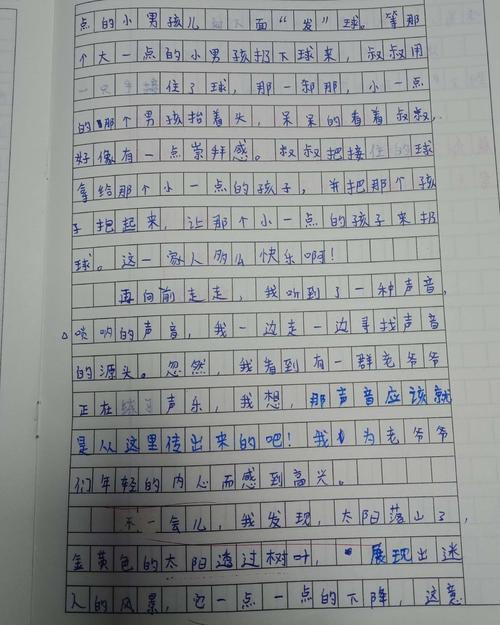 点的小男孩儿 下面“发”球。等那
个大一点的小男孩扔下球来，叔叔用
一只手接住了球，那一刹那，小一点
的那个男孩抬着头，呆呆的看着叔叔，
好像有一点崇拜感。叔叔把接住的球
拿给那个小一点的孩子，并把那个孩
子抱起来，让那个小一点的孩子来扔
球。这一家人多么快乐啊！
再向前走走，我听到了一种声音，
唢呐的声音，我一边走一边寻找声音
的源头。忽然，我看到有一群老爷爷
正在练习声乐，我想，那声音应该就
是从这里传出来的吧！我为老爷爷
们年轻的内心而感到高兴。
不一会儿，我发现，太阳落山了，
金黄色的太阳透过树叶，展现出迷
人的风景，它一点一点的下降，这意